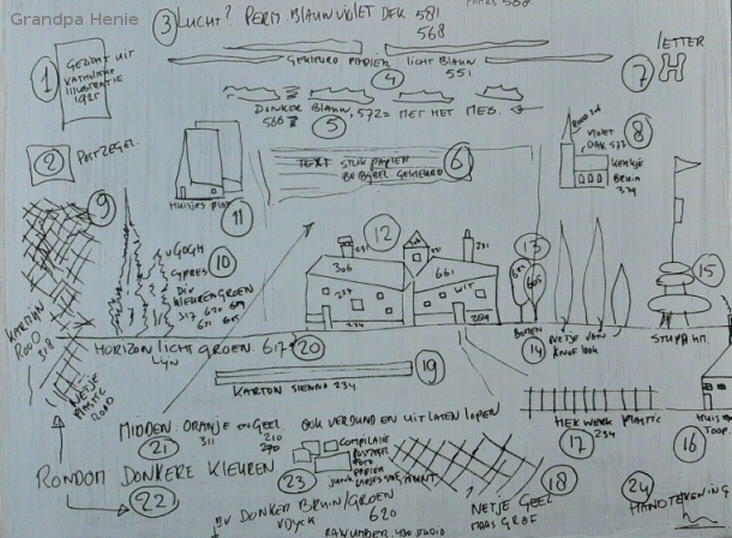 Grandpa Henie
PAARS 568.
3 LUCHT? PERM. BLAUWVIOLET DEK 581
568
1 GEZICHT UIT
KATHOLIEKE
ILLUSTRATIE
1925
GEKLEURD PAPIER LICHT BLAUW
551
4
LETTER
7 H
DONKER BLAUW, 572= MET HET MES.
566
5
2 POSTZEGEL.
ROOD
VIOLET
DAK 577
8
KERKJE
BRUIN
339
TEXT STUK PAPIER
BV BIJBEL GEKLEURD
6
HUISJES PLAT
11
9
v GOGH
CYPRES 10
DIV
KLEUREN GROEN
317 620
12
306
227
234
231
661
WIT
231
13
15
KARTIJN
ROOD
318
NETJE
PLASTIC
ROOD
HORIZON LICHT GROEN. 617 20
LIJN
BOMEN
14
NETJE VAN
KNOFLOOK
STUPA
19
KARTON SIENNA 234
MIDDEN: ORANJE en GEEL OOK VERDUND EN UIT LATEN LOPEN
311 210
270
21
HEKWERK PLASTIC
17 234
HUIS
TOOP.
16
RONDOM DONKERE KLEUREN
22
23
COMPILATIE
POSTZEGEL
FOTO
PAPIER
NETJE GEEL 18
MAAS GROF
24
HANDTEKENING
BV DONKER BRUIN/GROEN
VDYCK 620
RAW UMBER. 430 STUDIO